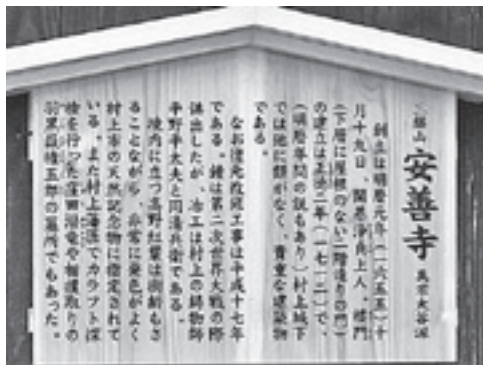 安善寺 真宗大谷派
創立は明暦元年(一六五五)十
月十九日、開基浄貞上人。楼門
(下層に屋根のない二階造りの門)
の建立は正徳二年(一七一二)で、
(明暦年間の説もあり)村上城下
では他に類がなく、貴重な建築物
である。
なお復元改修工事は平成十七年
である。鐘は第二次世界大戦の際
供出したが、冶工は村上の鋳物師
平野半太夫と同清兵衛である。
境内に立つ高野紅葉は樹齢もさ
ることながら、非常に発色がよく
村上市の天然記念物に指定されて
いる。また村上海匪でカラフト探
検を行った窪田潜竜や相撲取りの
羽黒嶽権五郎の墓所でもあった。